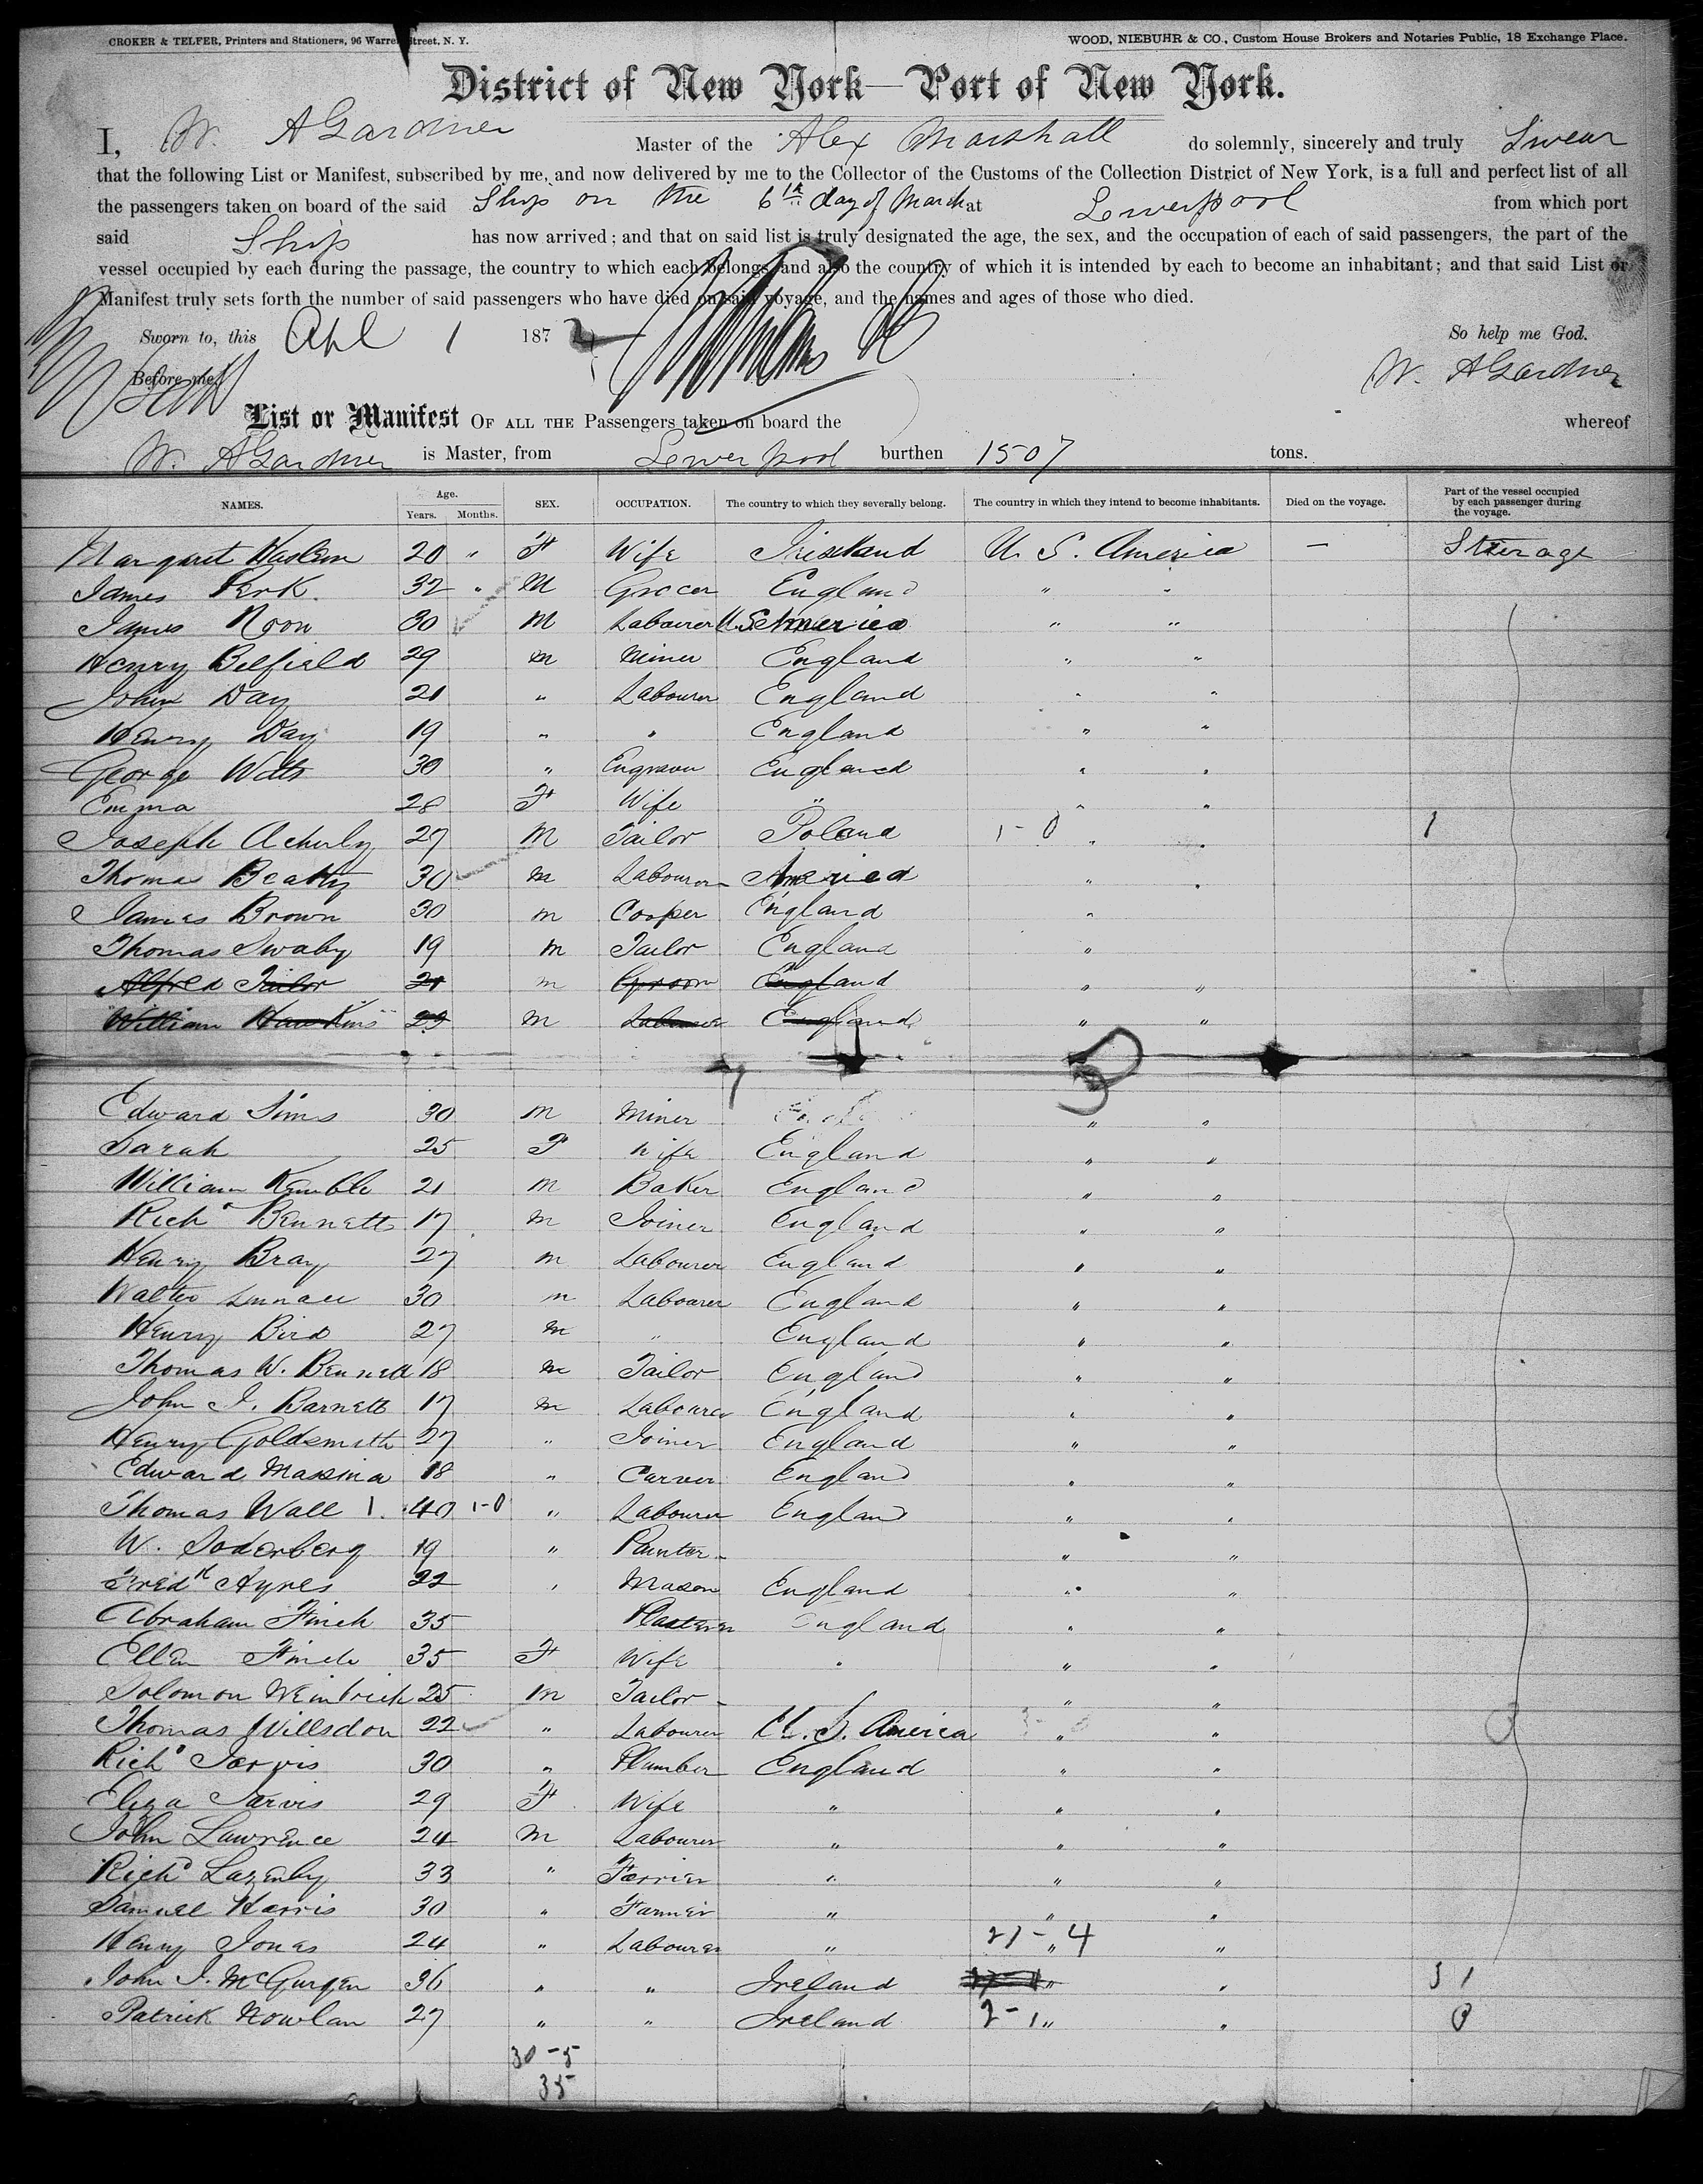 CROKER & TELFER, Printers and Stationers, 96 Warren Street, N. Y.
WOOD, NIEBUHR & CO., Custom House Brokers and Notaries Public, 18 Exchange Place.
District of New York—Port of New York.
I, W. A Gardner Master of the Alex Marshall do solemnly, sincerely and truly Swear
that the following List or Manifest, subscribed by me, and now delivered by me to the Collector of the Customs of the Collection District of New York, is a full and perfect list of all
the passengers taken on board of the said Ship on the 6th day of March at Liverpool from which port
said Ship has now arrived; and that on said list is truly designated the age, the sex, and the occupation of each of said passengers, the part of the
vessel occupied by each during the passage, the country to which each belongs, and also the country of which it is intended by each to become an inhabitant; and that said List or
Manifest truly sets forth the number of said passengers who have died on said voyage, and the names and ages of those who died.
Sworn to, this Apl 1 187 So help me God.
Before me, W. A Gardner
List or Manifest OF ALL THE Passengers taken on board the whereof
W. A Gardner is Master, from Liverpool burthen 1507 tons.
NAMES. Age. Years. Months. SEX. OCCUPATION. The country to which they severally belong. The country in which they intend to become inhabitants. Died on the voyage. Part of the vessel occupied by each passenger during the voyage.
Margaret Haslem 20 " F Wife U. S. America — Steerage
James Perk 32 " M Grocer England " "
James Noon 30 M Labourer U.S. America " "
Henry Belfield 29 m Miner England " "
John Day 21 " Labourer England " "
Henry Day 19 " " England " "
George Watts 30 " England " "
Emma 28 F Wife " " "
Joseph Acherly 27 M Tailor Poland 1-0 " " 1
Thomas Beatty 30 m Labourer America " "
James Brown 30 m Cooper England "
Thomas Swaby 19 m Tailor England "
Alfred Tailor 21 m Groom England " "
William Hawkins 23 m Labourer England " "
Edward Sims 30 m Miner " "
Sarah 25 F Wife England " "
William Kemble 21 m Baker England " "
Richd Bennett 17 m Joiner England " "
Henry Bray 27 m Labourer England " "
Walter 30 m Labourer England " "
Henry Bird 27 m " England " "
Thomas W. Bennett 18 m Tailor England " "
John J. Barnett 17 m Labourer England " "
Henry Goldsmith 27 " Joiner England " "
Edward Massina 18 " Carver England " "
Thomas Wall 1. 40 1-0 " Labourer England " "
W. Soderberg 19 " Painter " "
Fredk Ayres 22 " Mason England " "
Abraham Finch 35 Plasterer England " "
Ellen Finch 35 F Wife " " "
Solomon Weinbrich 25 m Tailor " "
Thomas Willsdon 22 " Labourer U. S. America " "
Richd Jarvis 30 " Plumber England " "
Eliza Jarvis 29 F Wife " " "
John Lawrence 24 m Labourer " " "
Richd Lazenby 33 " Farrier " " "
Samuel Harris 30 " Farmer " " "
Henry Jones 24 " Labourer " 21-4 " "
John J. McGurgen 36 " " Ireland " "
Patrick Nowlan 27 " " Ireland 2-1 " "
30-5
35